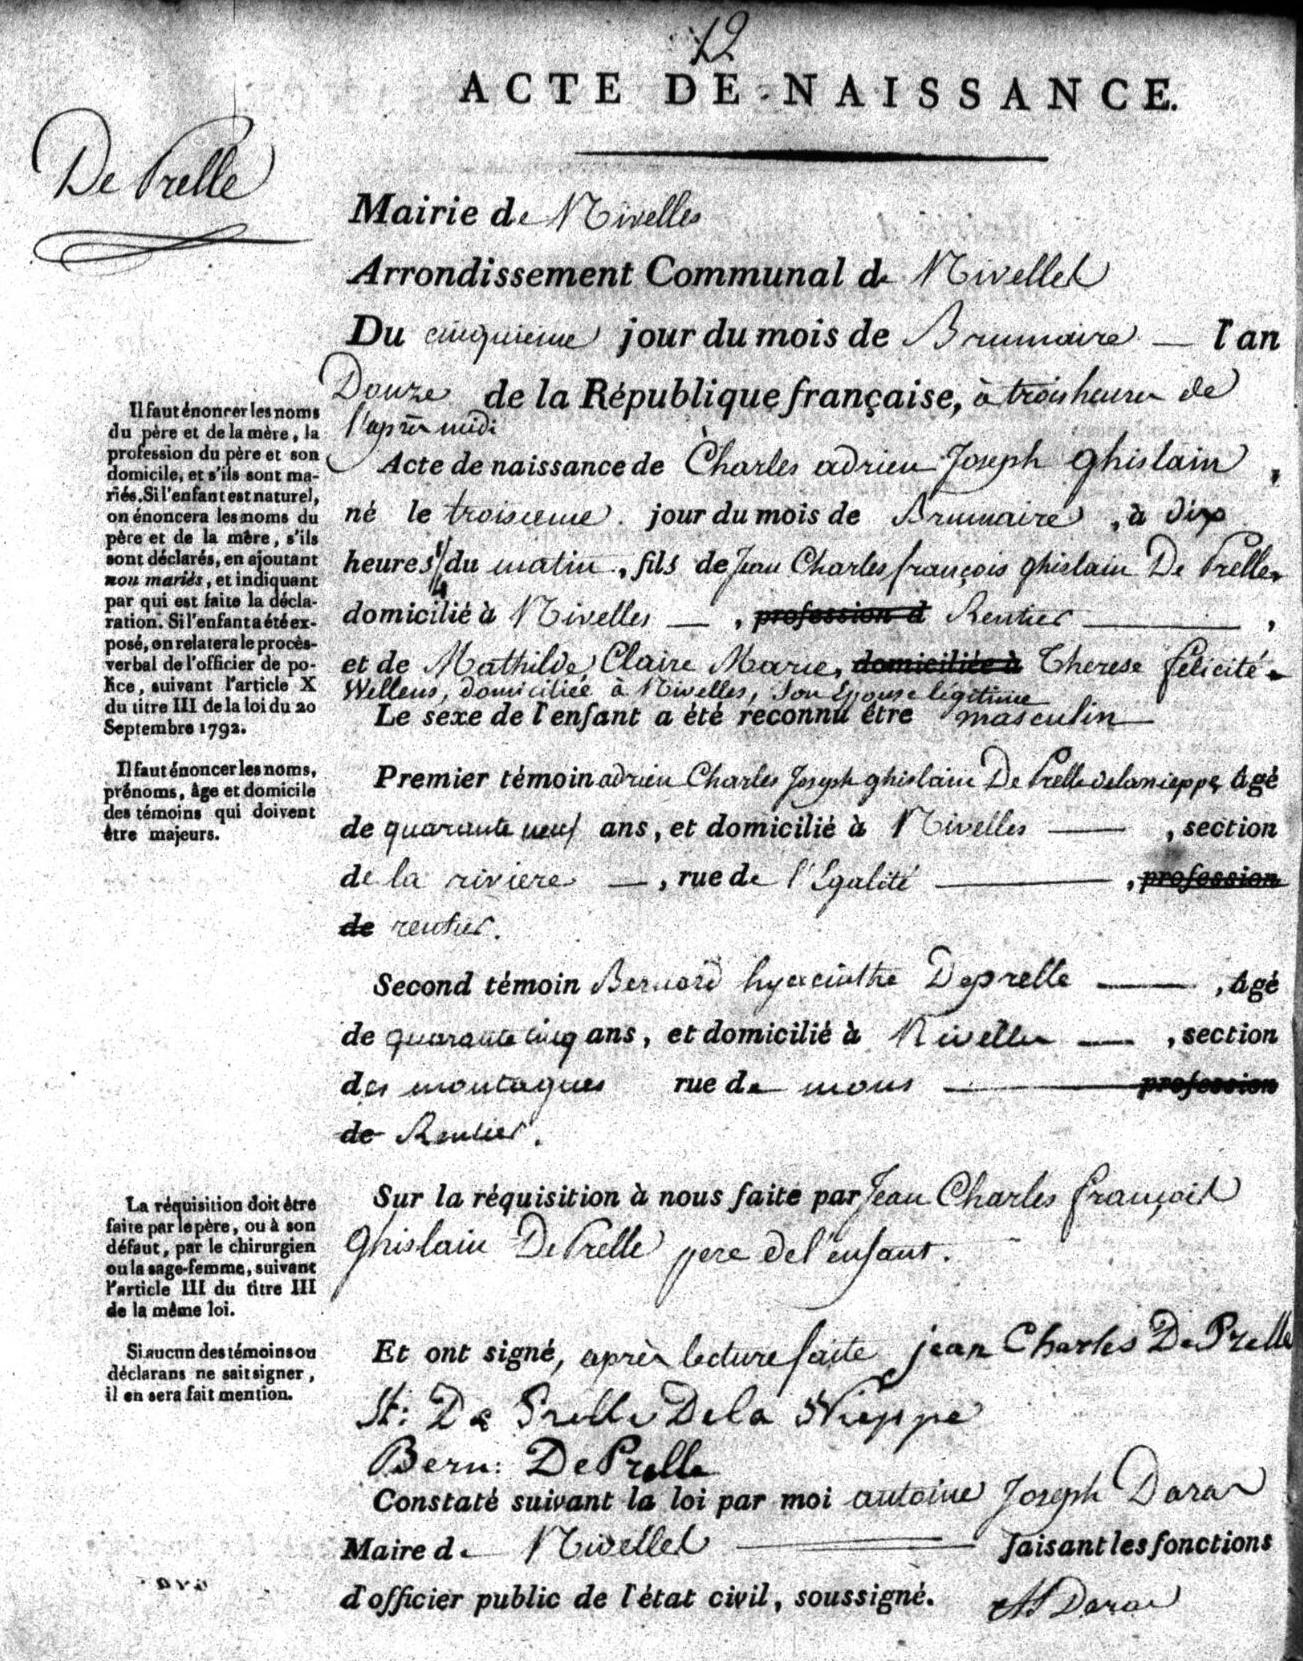 12
ACTE DE NAISSANCE.
De Prelle
Mairie de Nivelles
Arrondissement Communal de Nivelles
Du cinquieme jour du mois de Brumaire — l'an
Douze de la République française, à trois heures de
l'après midi
Acte de naissance de Charles adrien Joseph ghislain,
né le troisieme jour du mois de Brumaire, à dix
heures 1/4 du matin, fils de Jean Charles françois ghislain De Prelle,
domicilié à Nivelles —, profession d Rentier —,
et de Mathilde Claire Marie, domiciliée à Therese félicité
Wellens, domiciliée à Nivelles, son Epouse légitime
Le sexe de l'enfant a été reconnu être masculin —
Il faut énoncer les noms
du père et de la mère, la
profession du père et son
domicile, et s'ils sont ma-
riés. Si l'enfant est naturel,
on énoncera les noms du
père et de la mère, s'ils
sont déclarés, en ajoutant
non mariés, et indiquant
par qui est faite la décla-
ration. Si l'enfant a été ex-
posé, on relatera le procès-
verbal de l'officier de po-
lice, suivant l'article X
du titre III de la loi du 20
Septembre 1792.
Premier témoin adrien Charles Joseph ghislain De Prelle delanieppe, âgé
de quarante neuf ans, et domicilié à Nivelles —, section
de la riviere —, rue de l'Egalité —, profession
de rentier.
Il faut énoncer les noms,
prénoms, âge et domicile
des témoins qui doivent
être majeurs.
Second témoin Bernard hyacinthe Deprelle —, âgé
de quarante cinq ans, et domicilié à Nivelles —, section
des montagnes rue de mons — profession
de Rentier.
Sur la réquisition à nous faite par Jean Charles françois
Ghislain De Prelle pere de l'enfant.
La réquisition doit être
faite par le père, ou à son
défaut, par le chirurgien
ou la sage-femme, suivant
l'article III du titre III
de la même loi.
Et ont signé, après lecture faite jean Charles De Prelle
De Prelle De la Nieppe
Bern: De Prelle
Si aucun des témoins ou
déclarans ne sait signer,
il en sera fait mention.
Constaté suivant la loi par moi antoine Joseph Dara
Maire de Nivelles — faisant les fonctions
d'officier public de l'état civil, soussigné.